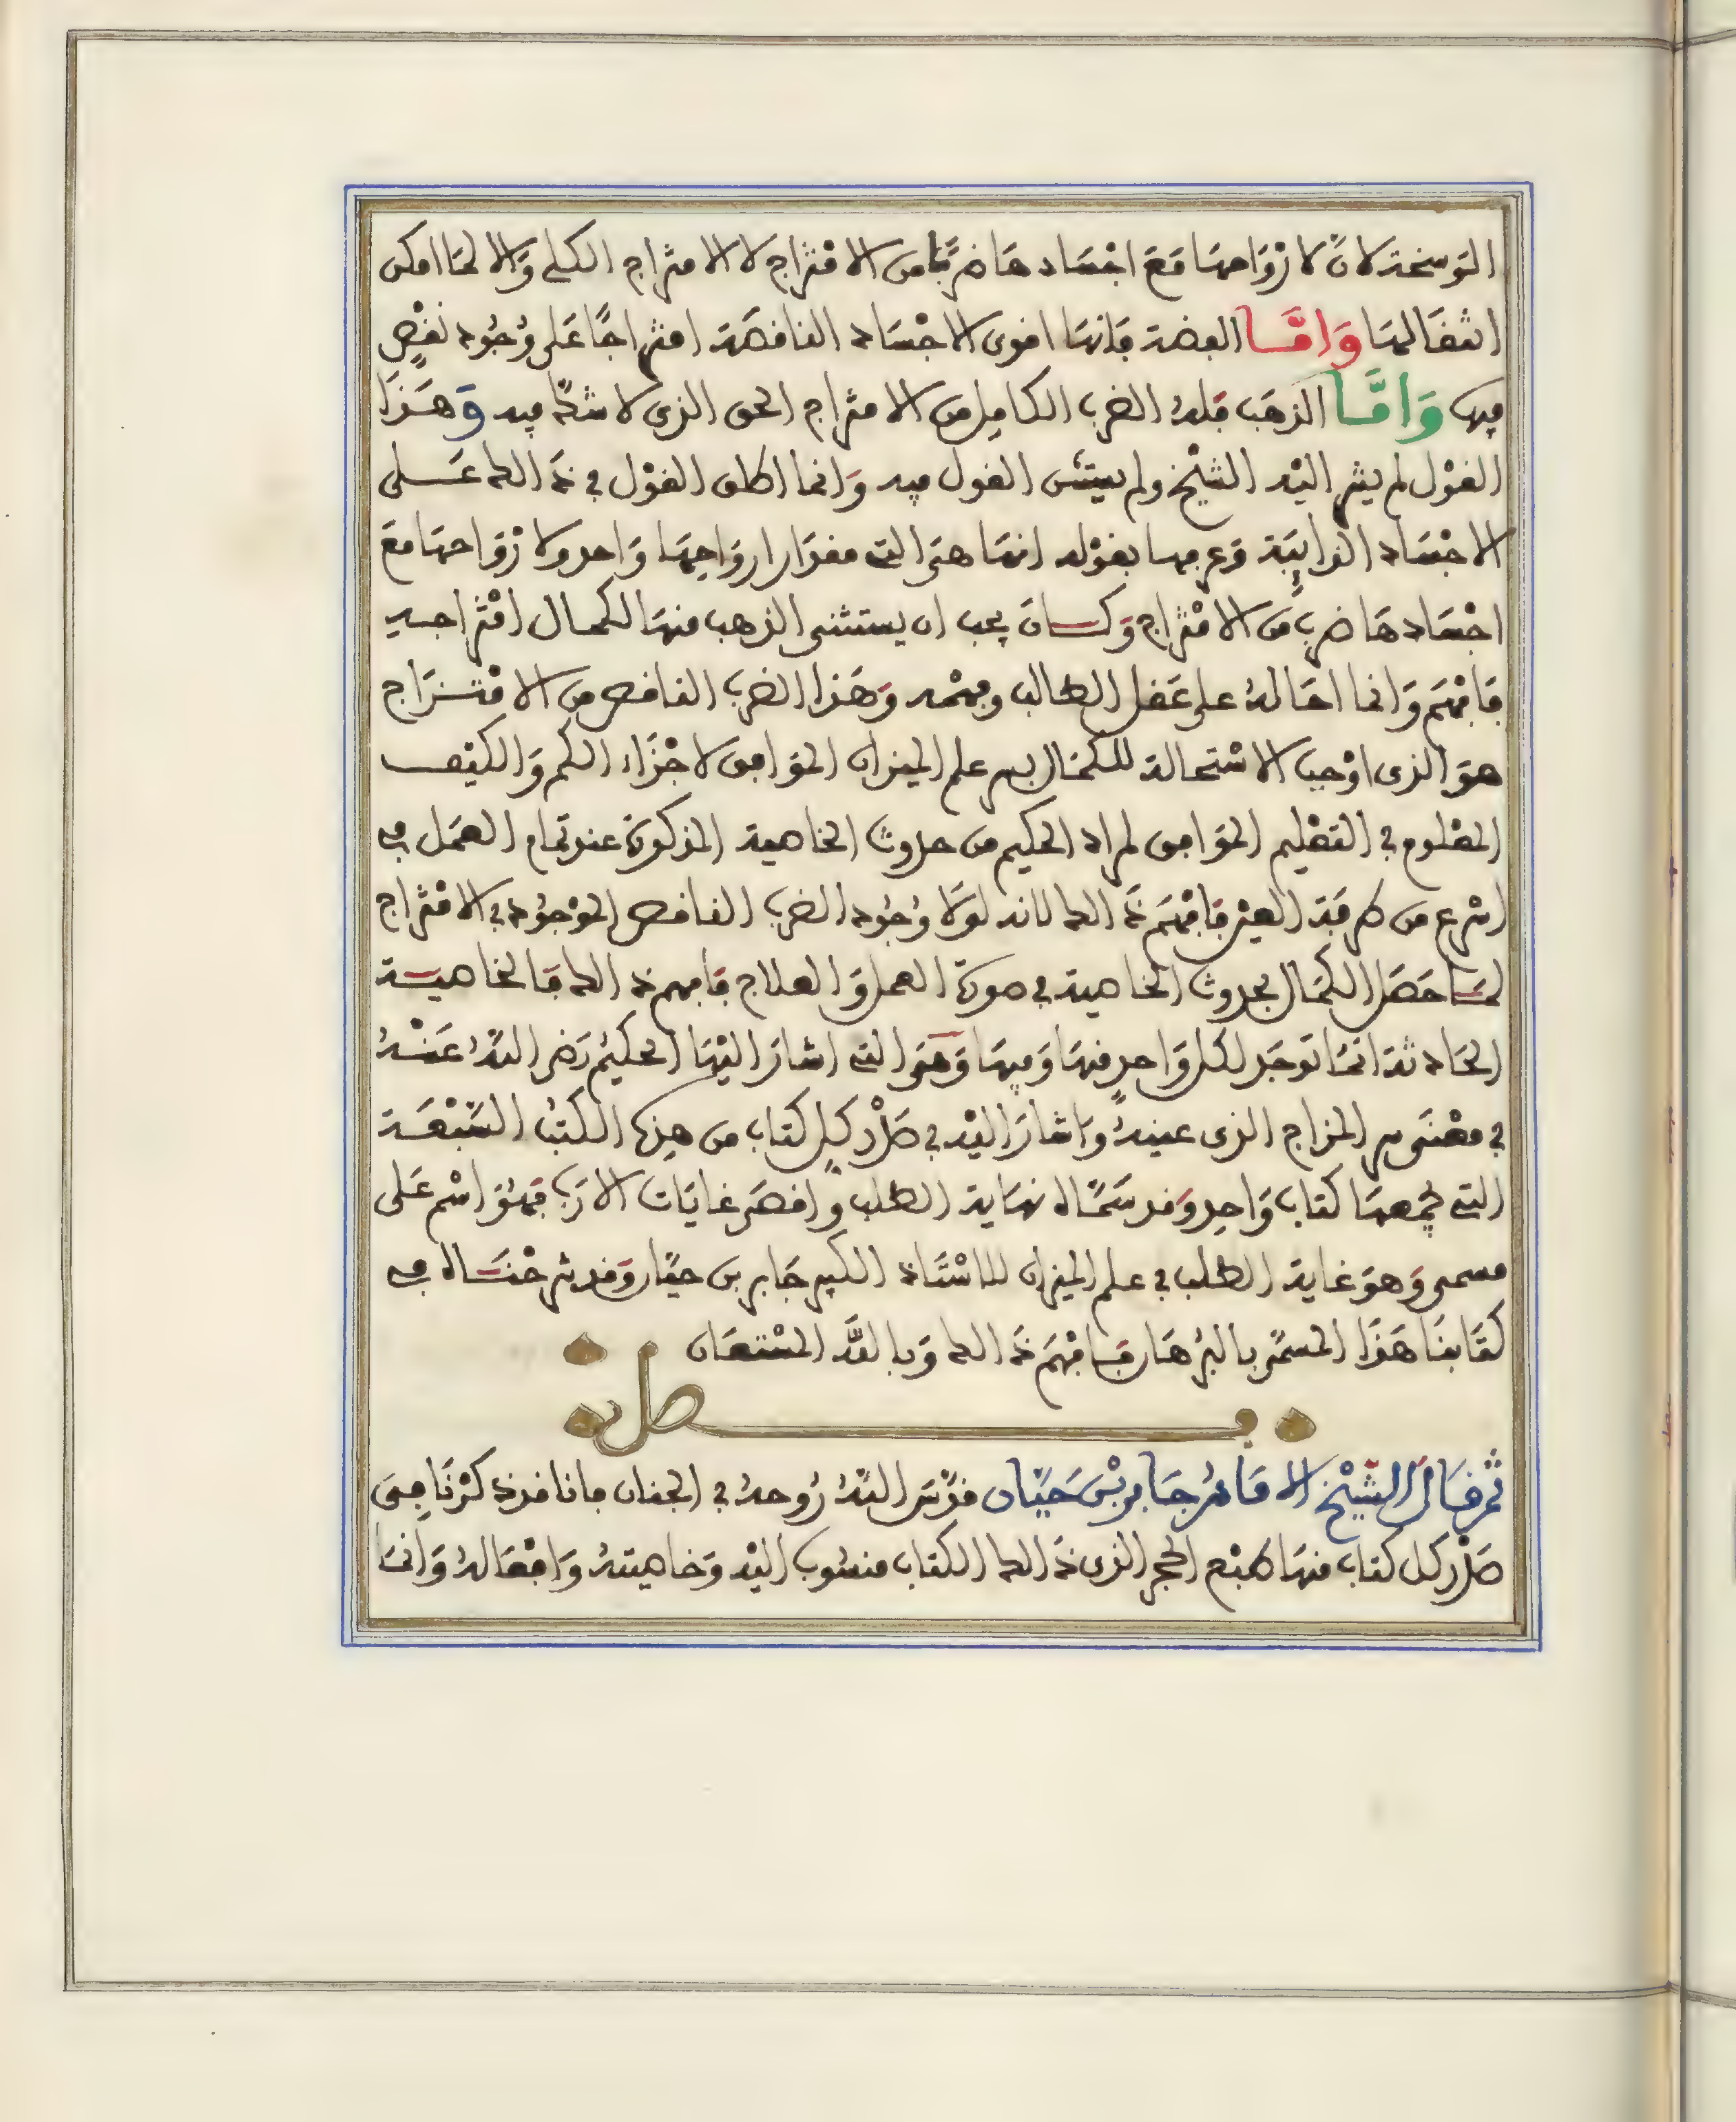 الوسخة لانّ لارْوَاحهَا مَعَ اجْسَادهَا ضرْبًا من الامْتزاج لا الامتزاج الكلي وَالا لمَا امكن
انتقَالهَا وَامَّا الفضة فَانهَا اقوى الاجْسَاد الناقصَة امتزاجًا عَلى وُجُود نقْصٍ
فيها وَامَّا الذهَب فلهُ الضرب الكامِل من الامتزاج الحق الذى لا شكّ فيه وَهَذَا
القوْل لم يشر اليْه الشيْخ ولم يستثن القول فيه وَانما اطلق القوْل في ذَالك عَلى
الاجْسَاد الذايبَة وَعرفها بقوْله انهَا هىَ التى مقدَار ارواحِهَا وَاحد ولارْوَاحهَا مَعَ
اجْسَادهَا ضرب من الامْتزاج وَكَانَ يجب ان يستثنى الذهب منهَا لكمال امْتزاجه
فَافهَم وَانما احَالهُ على عَقل الطالب وفهْمه وَهَذا الضرب الناقص من الامْتزَاج
هوَ الذى اوْجب الاسْتحالة للكمَال بسر علم الميزان الموَافق لاجْزَاء الكم وَالكيْف
المعْلوم في التعْليم الموَافق لمراد الحكيم من حدوث الخاصية المذكورة عند تمام العمَل في
اسْرع من طرفَة العين فَافْهَم ذَالك لانه لوْلا وُجُود الضرب الناقص الموْجوُد في الامْتزاج
لمَا حَصَل الكمَال بحدوث الخاصية في صورة العمل وَالعلاج فَافهم ذَالك فَالخاصية
الحَادثة انمَا توجَد لكل وَاحدٍ منهَا وَفيهَا وَهىَ التى اشارَ اليْهَا الحكيمُ رَضي اللهُ عَنْهُ
في معْنَى سر المزاج الذى عينهُ وَاشارَ اليْه في صَدْر كل كتاب من هذه الكتُب السَّبْعَة
التى يجْمعهَا كتاب وَاحِد وَقد سَمَّاه نهاية الطلب وَاقصَى غايَات الارَب فهُوَ اسْم عَلى
مسمى وَهوَ غاية الطلب في علم الميزان للاسْتَاذ الكبير جَابر بن حيَّان وَقد شرحْنَاه في
كتَابنَا هَذَا المسمَّى بالبُرْهَان فَافْهَم ذَالك وَبالله المسْتعَان
فصل
ثم قَالَ الشيْخ الامَامُ جَابر بْن حَيَّان قدَّسَ اللهُ رُوحهُ في الجنان فانا قد ذكرْنَا فِى
صَدْر كل كتاب منهَا طبْع الحجر الذى ذَالك الكتاب منسُوب اليْه وَخاصيتهُ وَافعَالهُ وَانمَا